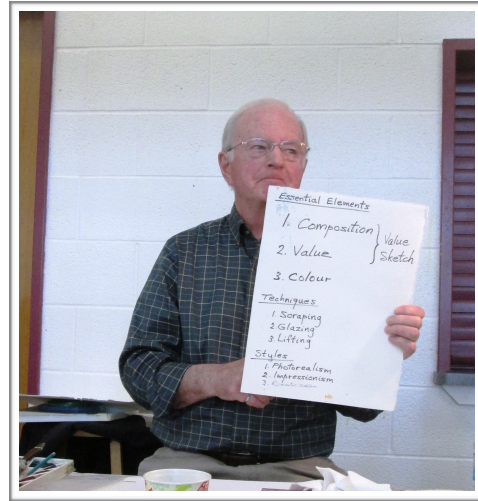 Essential Elements
1. Composition
Value
2. Value
Sketch
3. Colour
Techniques
1. Scraping
2. Glazing
3. Lifting
Styles
1. Photorealism
2. Impressionism
3.